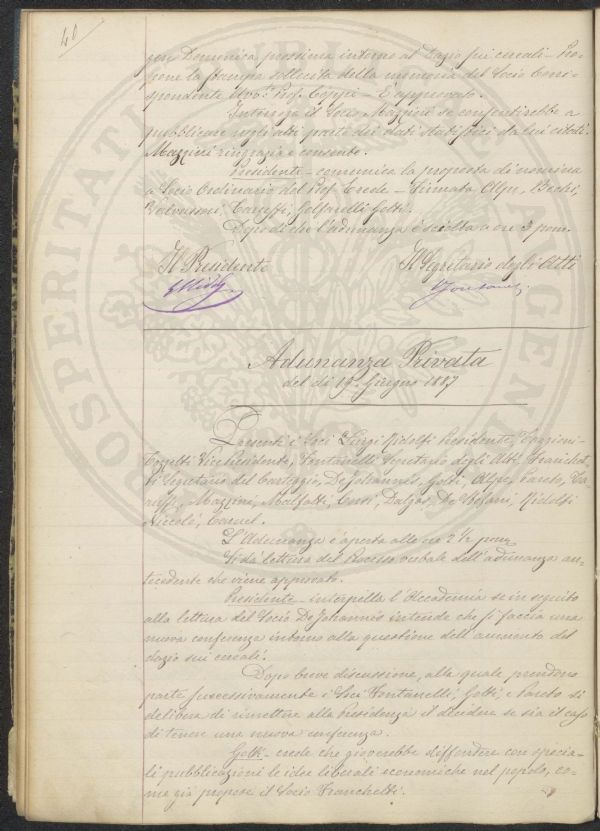 40
Domenica prossima intorno al Dazio sui cereali - Pro-
pone la stampa sollecita della memoria del Socio Corri-
spondente Avv.o Prof. Coppi - È approvato.
Interroga il Socio Mazzini se consentirebbe a
pubblicare negli atti parte dei dati statistici da lui citati.
Mazzini ringrazia e consente.
Presidente - comunica la proposta di nomina
a Socio Ordinario del Prof. - Firmata Alpe, Bechi,
Valvassori, Caruffi, Golfarelli, Gotti.
Dopo di che l'adunanza è sciolta a ore 3 pom.
Il Presidente Il Segretario degli Atti
Adunanza Privata
del dì 19 Giugno 1887
Presenti i Soci Luigi Ridolfi Presidente,
Vice Presidente, Fontanelli Segretario degli Atti, Franchet-
ti Segretario del Carteggio, De Johannis, Gotti, Alpe, Pareto,
Mazzini, Malfatti, Cori, Dalgas, De Stefani, Ridolfi
Niccolò, Caruel.
L'Adunanza è aperta alle ore 2 1/2 pom.
Si dà lettura del Processo verbale dell'adunanza an-
tecedente che viene approvato.
Presidente - interpella l'Accademia se in seguito
alla lettura del Socio De Johannis intende che si faccia una
nuova conferenza intorno alla questione dell'aumento del
dazio sui cereali.
Dopo breve discussione, alla quale prendono
parte successivamente i Soci Fontanelli, Gotti, e Pareto si
delibera di rimettere alla Presidenza il decidere se sia il caso
di tenere una nuova conferenza.
Gotti - crede che gioverebbe diffondere con specia-
li pubblicazioni le idee liberali economiche nel popolo, co-
me già propose il Socio Franchetti.
PROSPERITATI PUBLICAE AUGENDAE